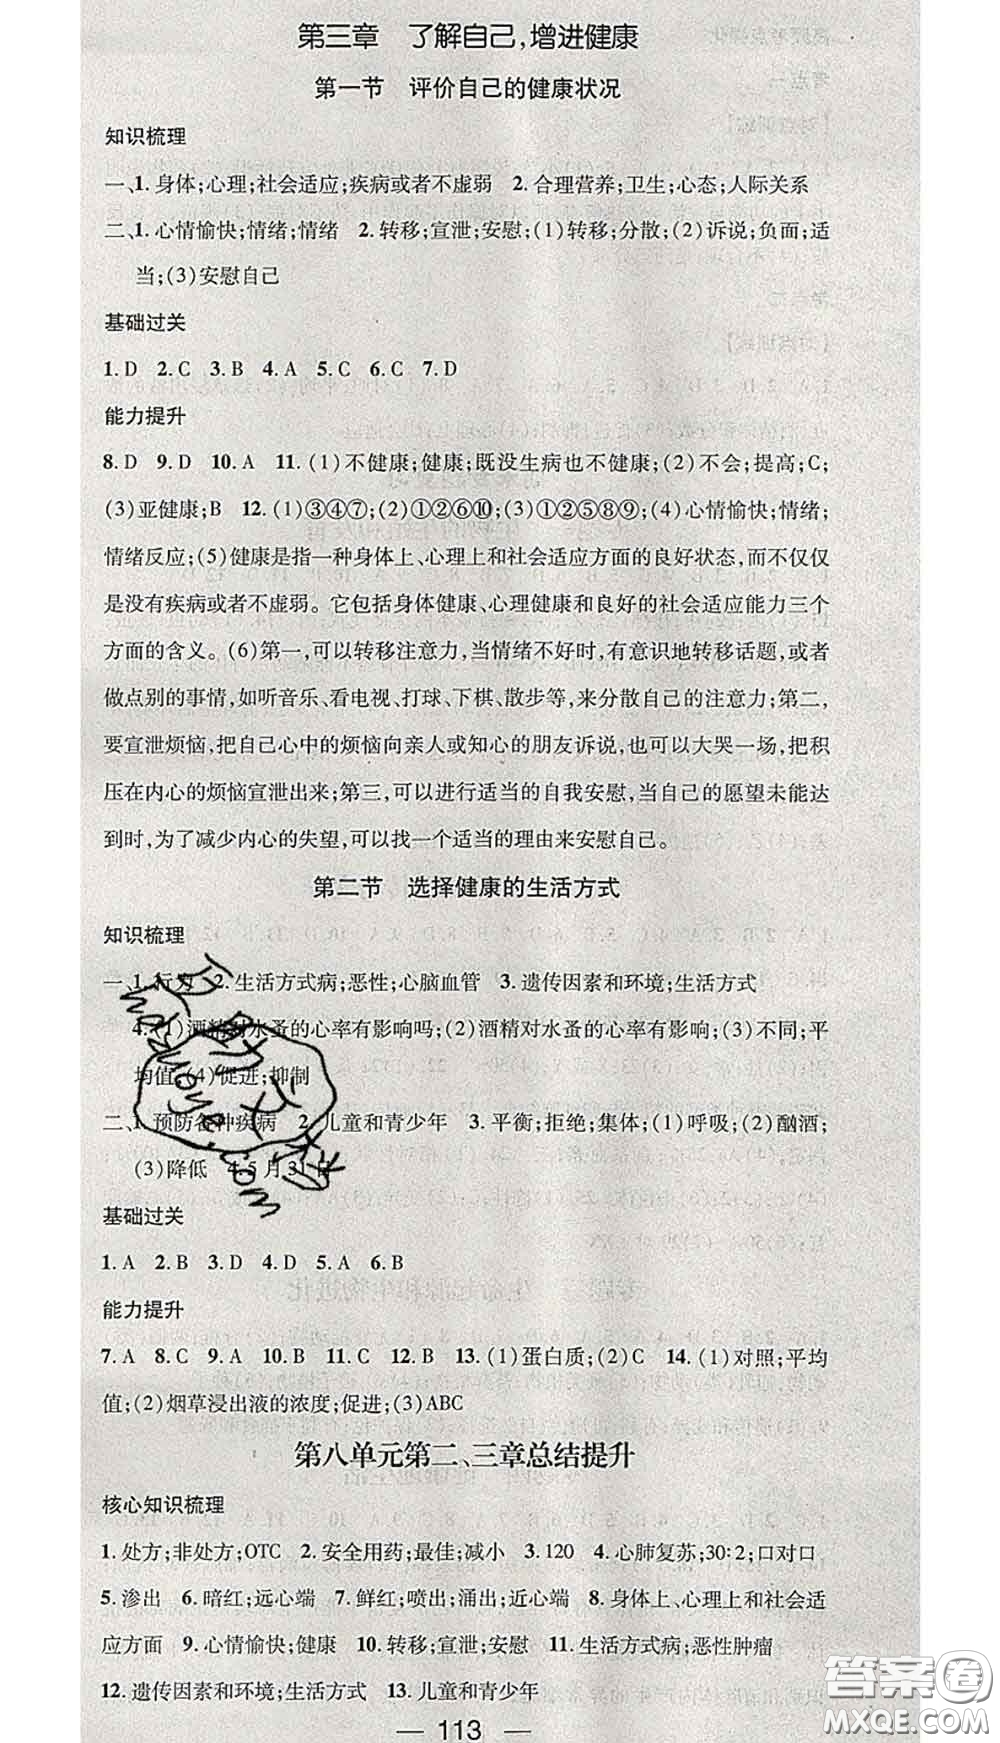 第三章　了解自己，增进健康
第一节　评价自己的健康状况
知识梳理
一、1.身体；心理；社会适应；疾病或者不虚弱　2.合理营养；卫生；心态；人际关系
二、1.心情愉快；情绪；情绪　2.转移；宣泄；安慰；(1)转移；分散；(2)诉说；负面；适
当；(3)安慰自己
基础过关
1.D　2.C　3.B　4.A　5.C　6.C　7.D
能力提升
8.D　9.D　10.A　11.(1)不健康；健康；既没生病也不健康；(2)不会；提高；C；
(3)亚健康；B　12.(1)③④⑦；(2)①②⑥⑩；(3)①②⑤⑧⑨；(4)心情愉快；情绪；
情绪反应；(5)健康是指一种身体上、心理上和社会适应方面的良好状态，而不仅仅
是没有疾病或者不虚弱。它包括身体健康、心理健康和良好的社会适应能力三个
方面的含义。(6)第一，可以转移注意力，当情绪不好时，有意识地转移话题，或者
做点别的事情，如听音乐、看电视、打球、下棋、散步等，来分散自己的注意力；第二，
要宣泄烦恼，把自己心中的烦恼向亲人或知心的朋友诉说，也可以大哭一场，把积
压在内心的烦恼宣泄出来；第三，可以进行适当的自我安慰，当自己的愿望未能达
到时，为了减少内心的失望，可以找一个适当的理由来安慰自己。
第二节　选择健康的生活方式
知识梳理
一、1.行为　2.生活方式病；恶性；心脑血管　3.遗传因素和环境；生活方式
4.(1)酒精对水蚤的心率有影响吗；(2)酒精对水蚤的心率有影响；(3)不同；平
均值；(4)促进；抑制
二、1.预防各种疾病　2.儿童和青少年　3.平衡；拒绝；集体；(1)呼吸；(2)酗酒；
(3)降低　4.5月31日
基础过关
1.A　2.B　3.D　4.D　5.A　6.B
能力提升
7.A　8.C　9.A　10.B　11.C　12.B　13.(1)蛋白质；(2)C　14.(1)对照；平均
值；(2)烟草浸出液的浓度；促进；(3)ABC
第八单元第二、三章总结提升
核心知识梳理
1.处方；非处方；OTC　2.安全用药；最佳；减小　3.120　4.心肺复苏；30∶2；口对口
5.渗出　6.暗红；远心端　7.鲜红；喷出；涌出；近心端　8.身体上、心理上和社会适
应方面　9.心情愉快；健康　10.转移；宣泄；安慰　11.生活方式病；恶性肿瘤
12.遗传因素和环境；生活方式　13.儿童和青少年
— 113 —
答案圈
MXQE.COM